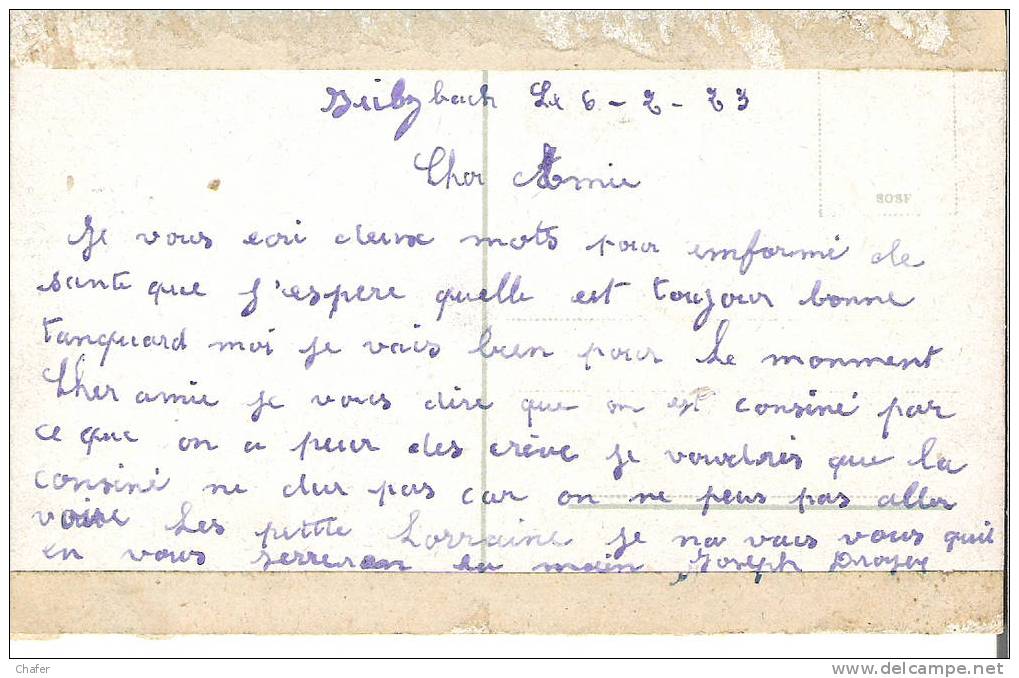 Le 6-2-23
Cher Amie
SOSF
Je vous ecri deux mots pour emformé de
sante que j'espere quelle est toujour bonne
tanquard moi je vais bien pour Le monment
Cher amie je vous dire que on est consiné par
ce que on a peur des crève je voudrais que la
consiné ne dur pas car on ne peus pas aller
voire Les petite Lorraine je na vais vous quil
en vous serreran la main Joseph
Chafer
www.delcampe.net